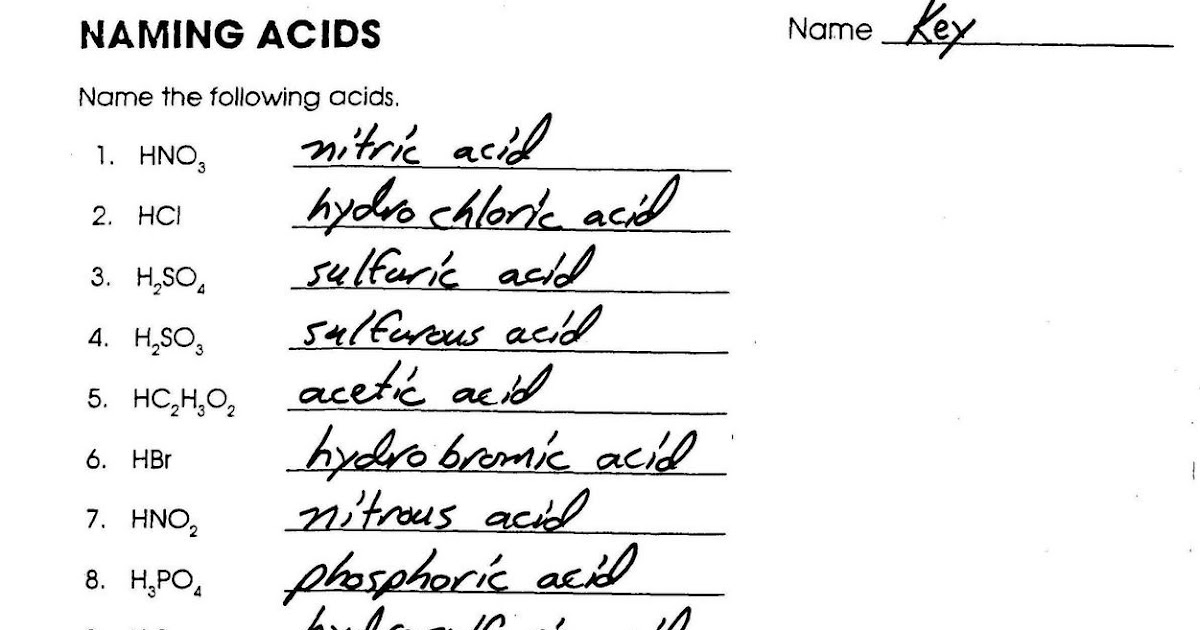 NAMING ACIDS
Name Key
Name the following acids.
1. HNO₃ nitric acid
2. HCl hydrochloric acid
3. H₂SO₄ sulfuric acid
4. H₂SO₃ sulfurous acid
5. HC₂H₃O₂ acetic acid
6. HBr hydrobromic acid
7. HNO₂ nitrous acid
8. H₃PO₄ phosphoric acid